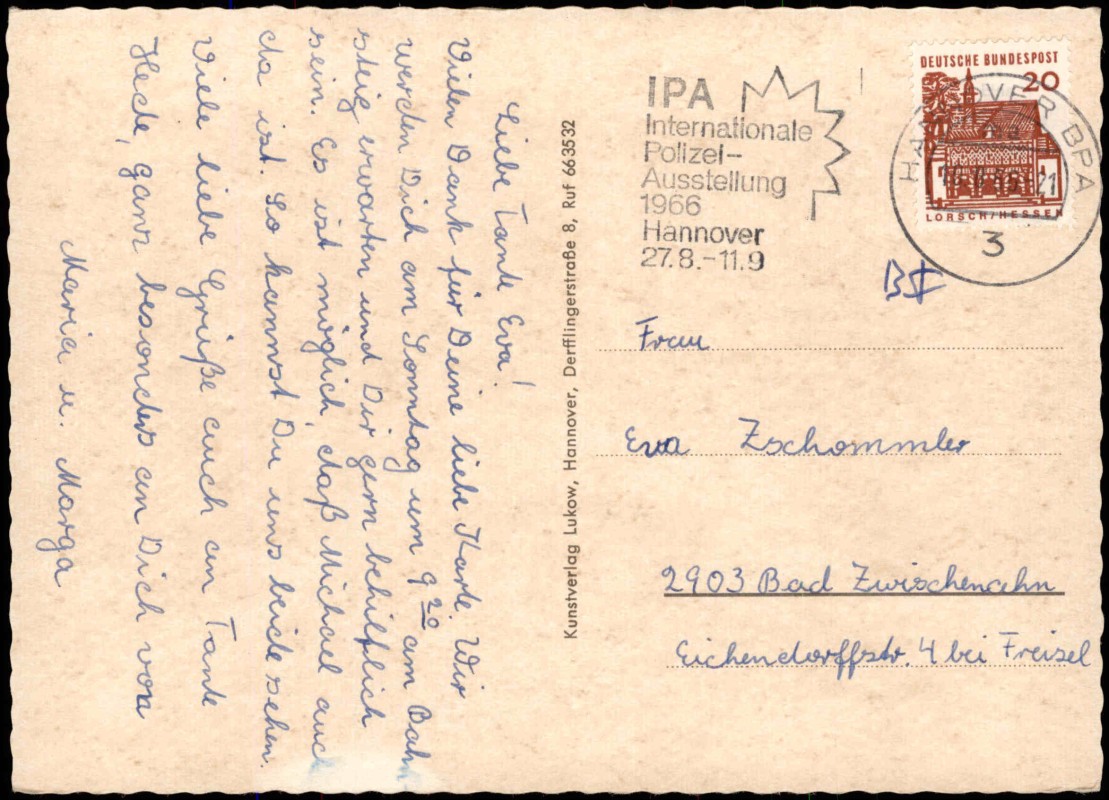 Liebe Tante Eva!
Vielen Dank für Deine liebe Karte. Wir
werden Dich am Sonntag um 9 20 am Bahn
steig erwarten und Dir gern behilflich
sein. Es ist möglich, daß Michael auch
da ist. So kannst Du uns beide sehen.
Viele liebe Grüße auch an Tante
Hede, ganz besonders an Dich von
Maria u. Marga
Kunstverlag Lukow, Hannover, Derfflingerstraße 8, Ruf 663532
IPA
Internationale
Polizei-
Ausstellung
1966
Hannover
27.8.-11.9
DEUTSCHE BUNDESPOST
20
LORSCH/HESSEN
HANNOVER BPA
3
Frau
Eva Zschommler
2903 Bad Zwischenahn
Eichendorffstr. 4 bei Freisel